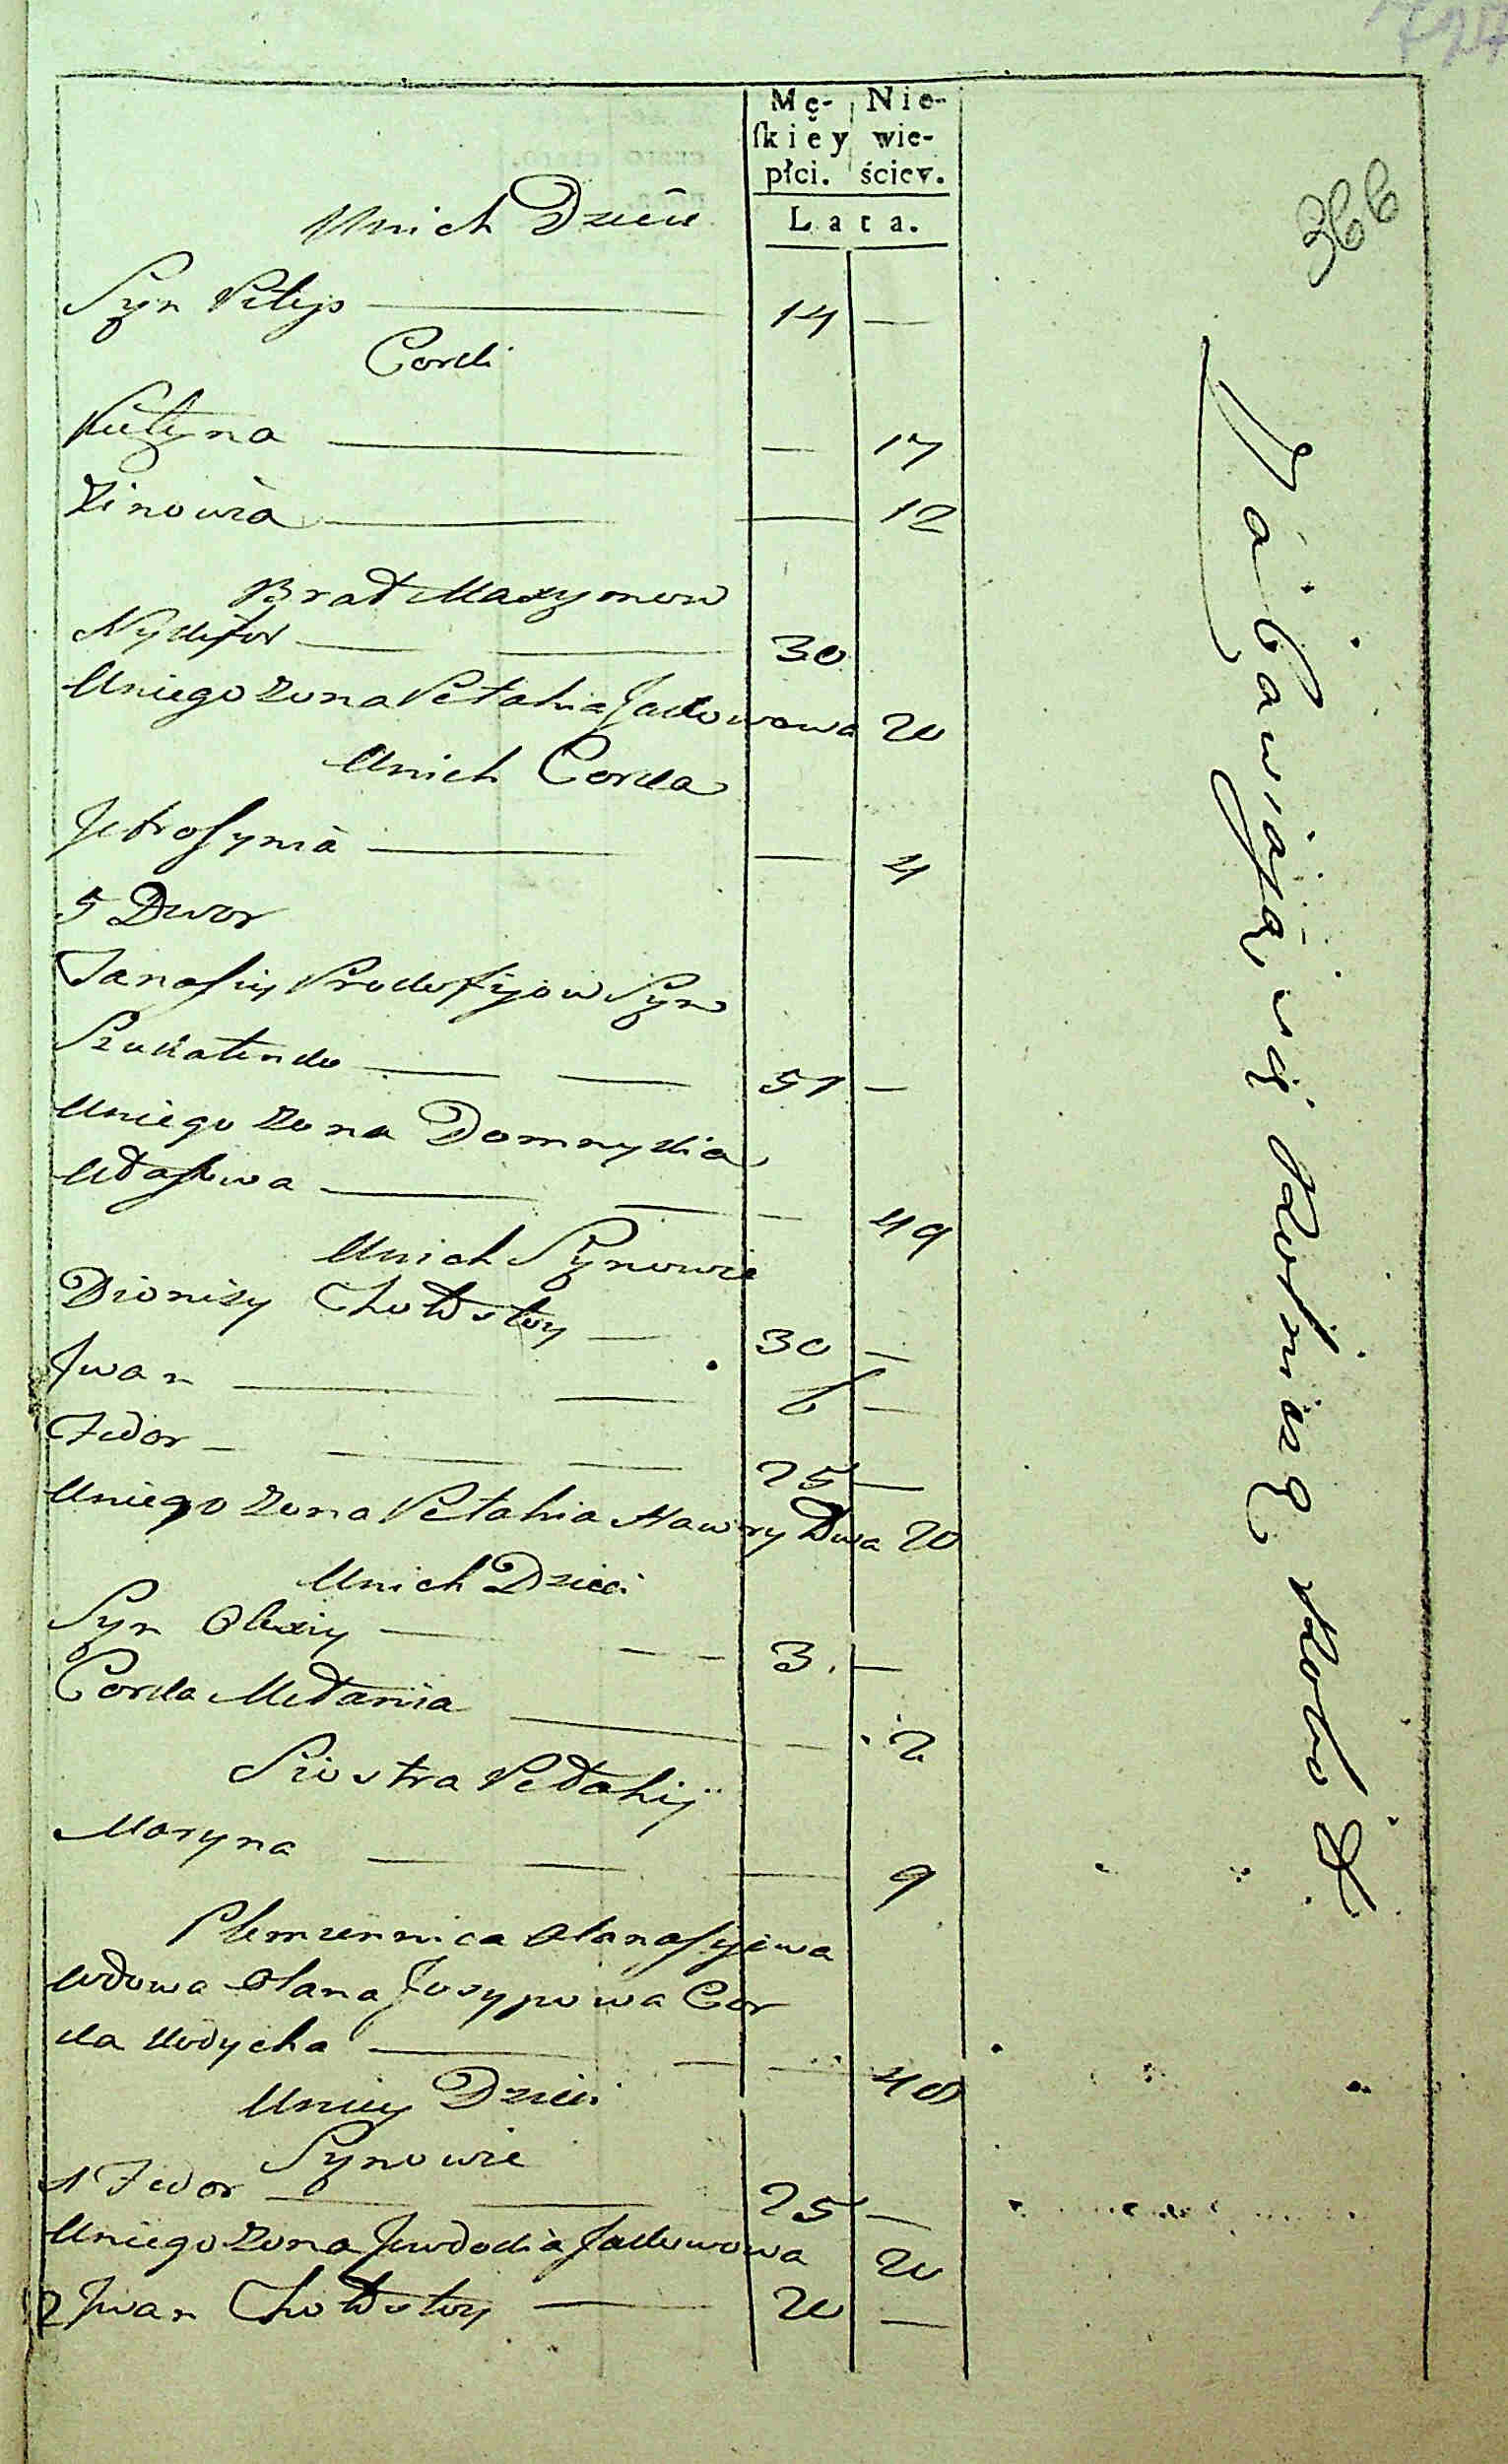 Mę- Nie-
skiéy wie-
płci. ściey.
Lata.
366
Unich Dzieci
Syn Pilip — 14 —
Corki
— 17
Zinowia — — 12
Brat Maxymow
Nykifor — — 30
Uniego Zona Pełahia Jakowowa 20
Unich Corka
Jefrosynia — — 4
5 Dwor
Tanasiy Prokofijow Syn
— — 51 —
Uniego Zona Domnykia
Własowa — — — 49
Unich Synowie
Dionizy Chołosty — 30 —
Jwan — — 6 —
Fedor — — — 25 —
Uniego Zona Pełahia Hawryłowa 20
Unich Dzieci
Syn Olexiy — — 3. —
Corka Mełania — — 2
Siostra Pełahij
Maryna — — — 9
Plemiennica Atanasyiowa
wdowa Olana Josypowa Cor
ka — — — 40
Uniey Dzieci
Synowie
1 Fedor — — 25 —
Uniego Zona Jewdokia Jakowowa 20
2 Jwan Chołosty — 20 —
Zabawiaią się Rolniczą Robotą